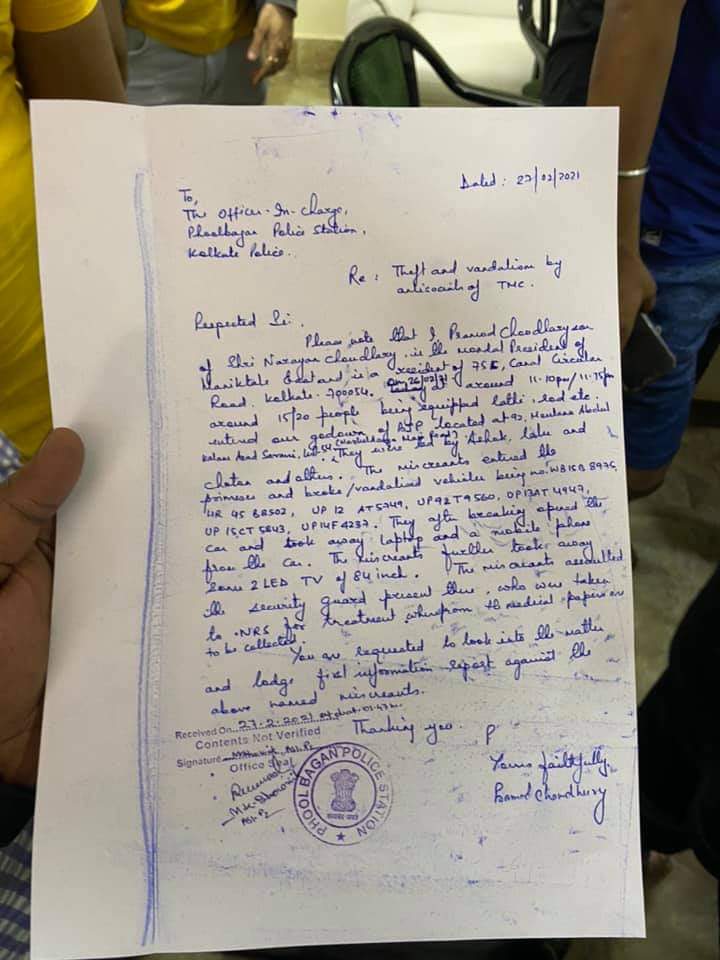 Dated: 27/02/2021
To,
The Officer-In-Charge,
Phoolbagan Police Station,
Kolkata Police.
Re: Theft and vandalism by
antisocials of TMC.
Respected Sir,
Please note that I Pramod Choudhary son
of Shri Narayan Choudhary is the mandal President of
Maniktala East and is a resident of 75E, Canal Circular
Road, Kolkata-700054. On 26/02/21 at around 11.10pm/11.15pm
around 15/20 people being equipped lathi, rod etc.
entered our godown of BJP located at 92, Moulana Abul
Kalam Azad Sarani, Kol-54 Main Road
They were led by Ashok, Lalu and
Chotan and others. The miscreants entered the
primeses and broke/vandalised vehicles being no. WB15B 8975,
HR 45 B8502, UP 12 AT5749, UP92T9560, UP13AT4947,
UP 15CT5843, UP14F4237. They after breaking opened the
car and took away laptop and a mobile phone
from the car. The miscreants further took away
some 2 LED TV of 84 inch. The miscreants assaulted
the security guard present there, who was taken
to NRS for treatment wherefrom the medical papers are
to be collected.
You are requested to look into the matter
and lodge first information report against the
above named miscreants.
Thanking you.
Received On 27-2-2021 at
Contents Not Verified
Signature
Office Seal
PHOOLBAGAN POLICE STATION
Yours faithfully,
Pramod Choudhury